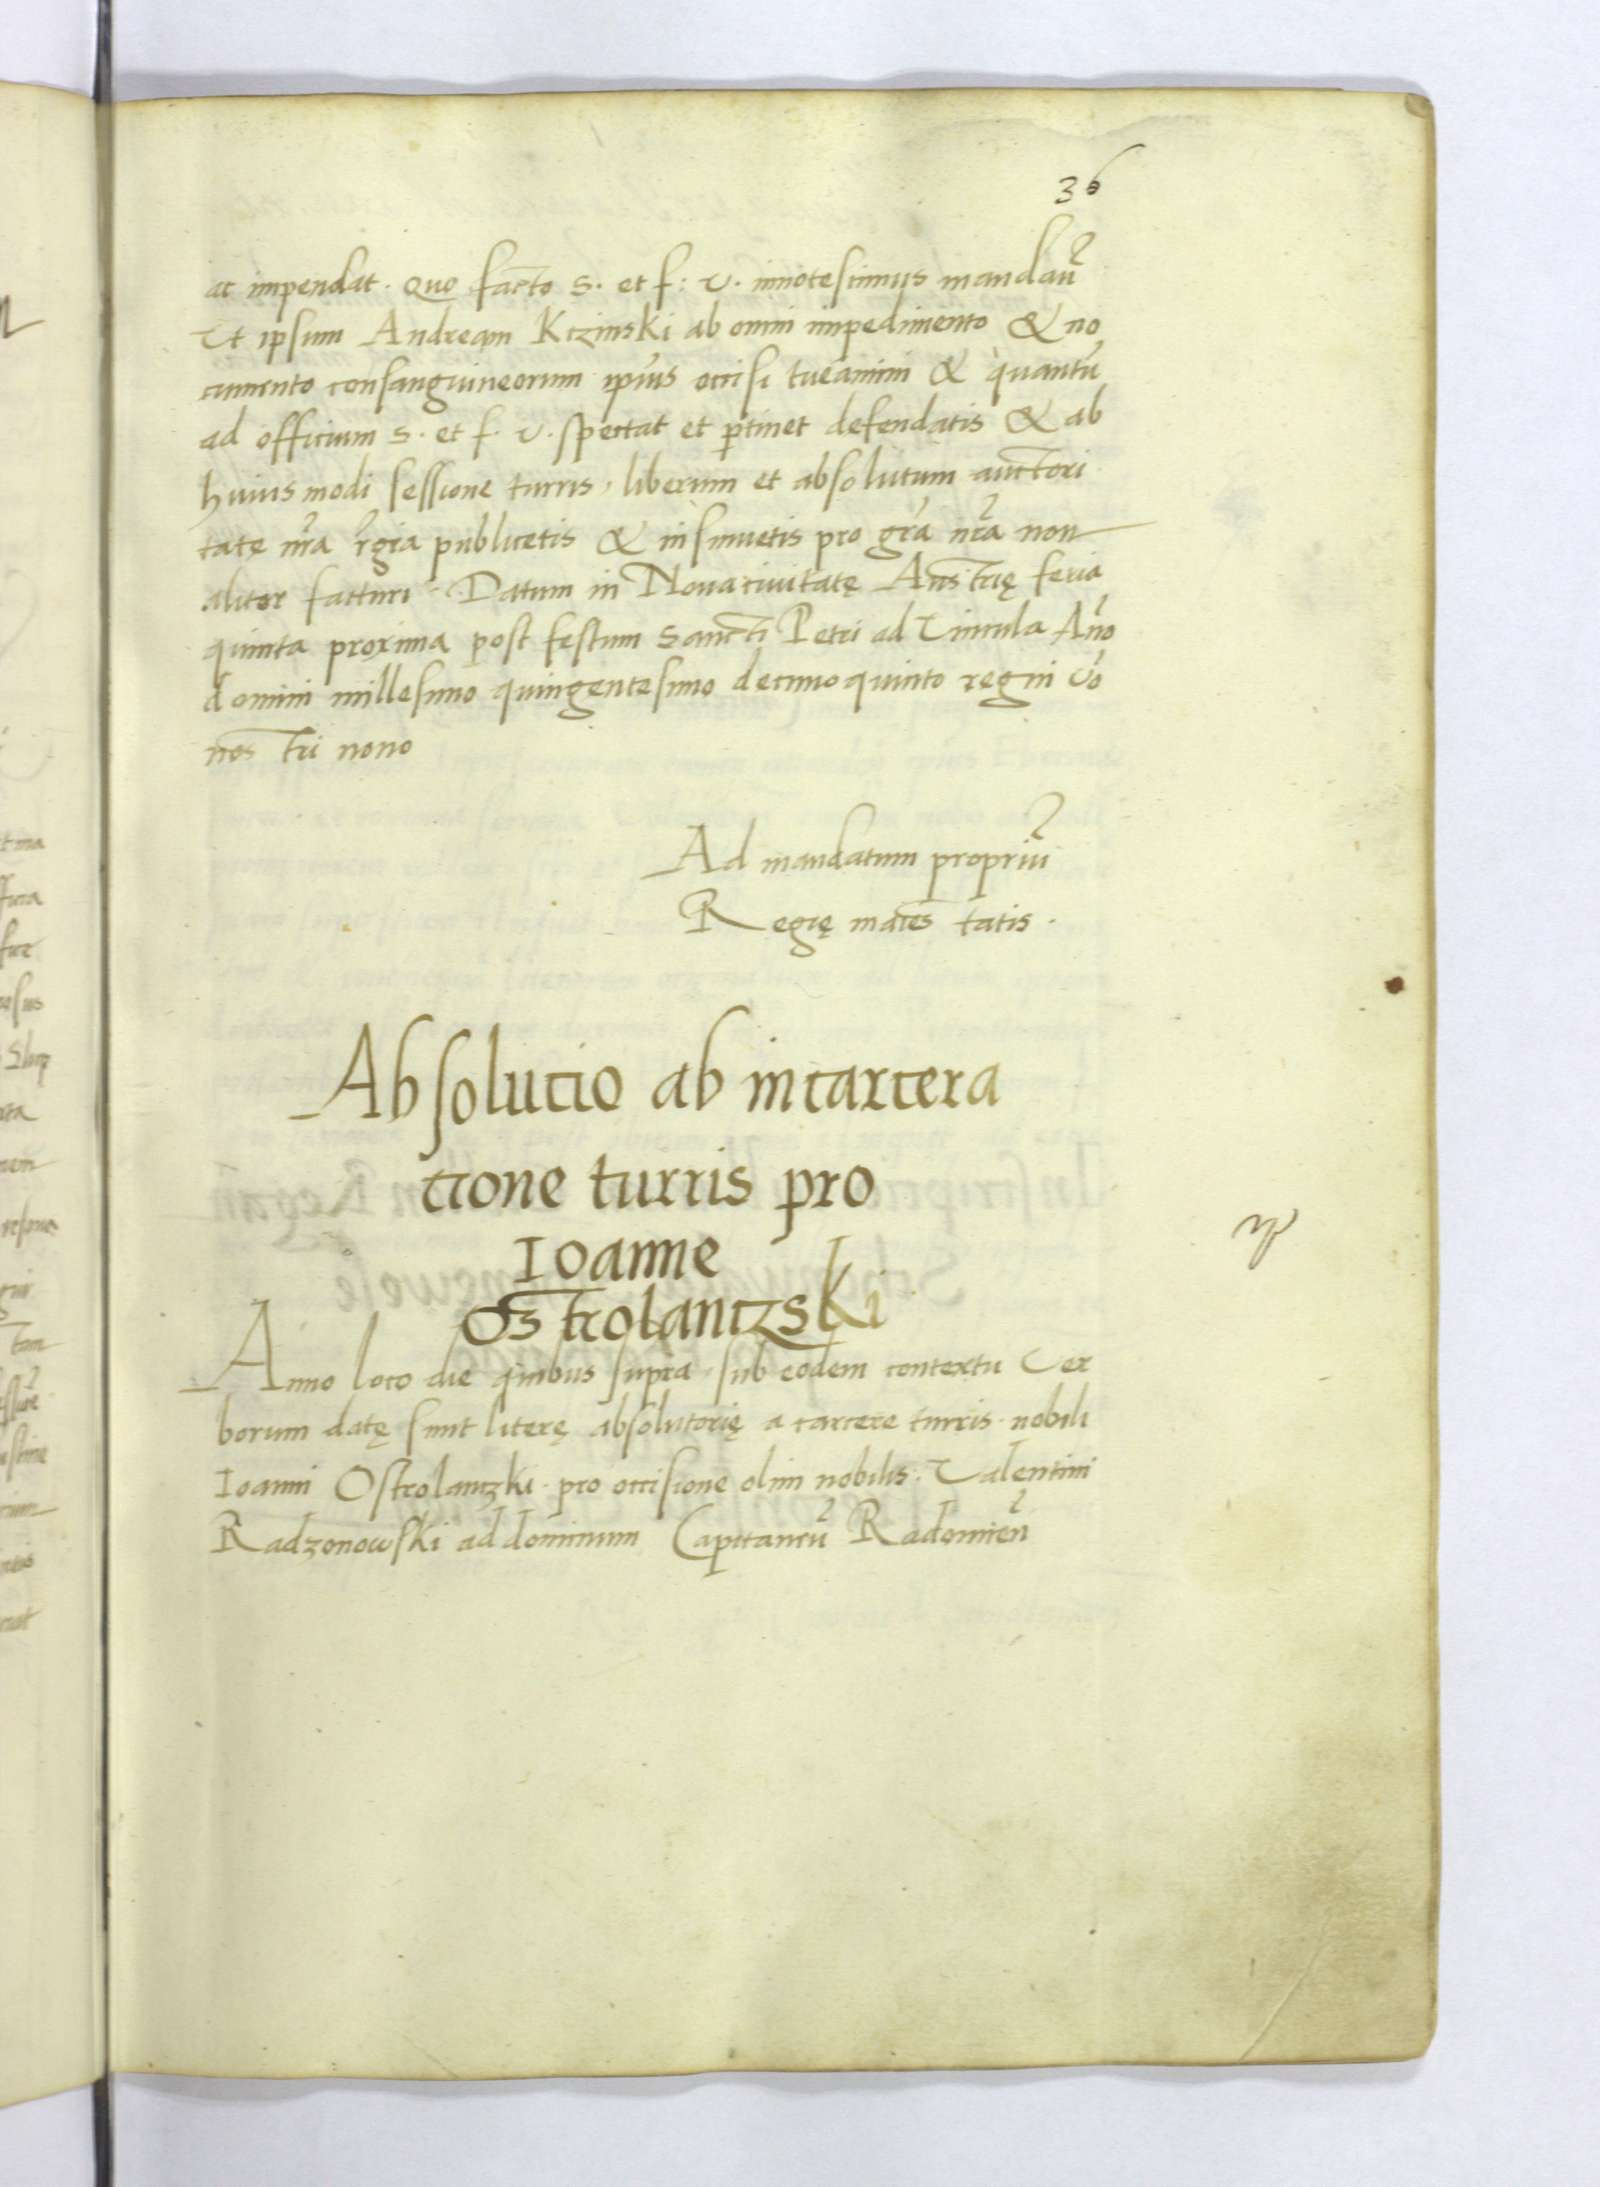 36
ac impendat. Quo facto S. et f: V. innotescimus mandan̄
Ut ipsum Andream Kczinski ab omni impedimento & no
cumento consanguineorum ipius occisi tueamini & quantū
ad officium S. et f. V. spectat et ptinet defendatis & ab
huiusmodi sessione turris, liberum et absolutum auctori
tate nrā rgīa publicetis & insinuetis pro grā nrā non
aliter facturi. Datum in Nova civitatę Austrię feria
quinta proxima post festum Sancti Petri ad Vincula Año
domini millesimo quingentesimo decimoquinto regni vo
nostri nono
Ad mandatum propriū
Regię maiestatis.
Absolucio ab incarcera
cione turris pro
Ioanne
Ostrolanczski
Anno loco die quibus supra sub eodem contextu Ver
borum datę sunt literę absolutorię a carcere turris. nobili
Ioanni Ostrolanczki. pro occisione olim nobilis. Valentini
Radzonowski ad dominum Capitaneū Radomien̄